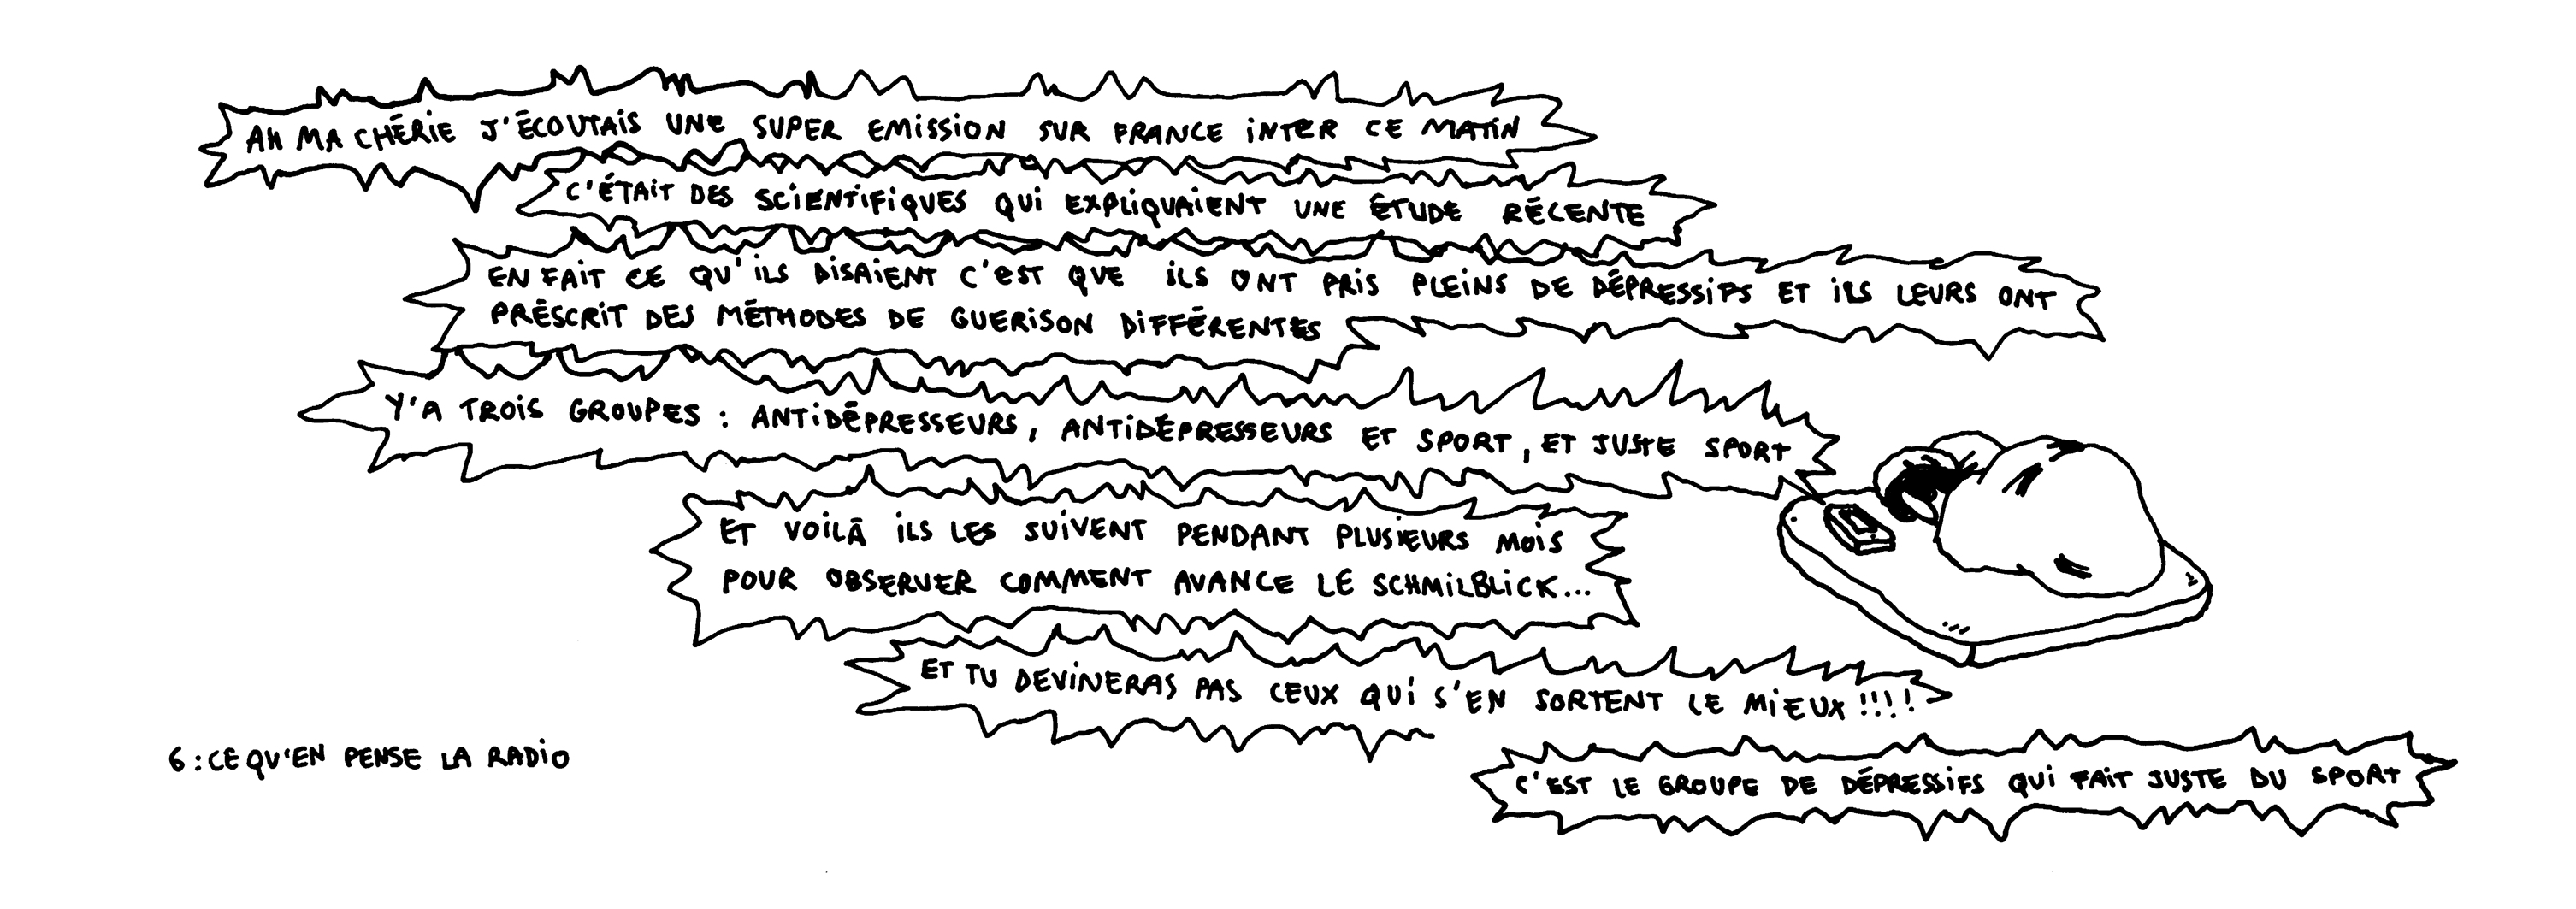 AH MA CHÉRIE J'ÉCOUTAIS UNE SUPER EMISSION SUR FRANCE INTER CE MATIN
C'ÉTAIT DES SCIENTIFIQUES QUI EXPLIQUAIENT UNE ÉTUDE RÉCENTE
EN FAIT CE QU'ILS DISAIENT C'EST QUE ILS ONT PRIS PLEINS DE DÉPRESSIFS ET ILS LEURS ONT
PRÉSCRIT DES MÉTHODES DE GUERISON DIFFÉRENTES
Y'A TROIS GROUPES : ANTIDÉPRESSEURS, ANTIDÉPRESSEURS ET SPORT, ET JUSTE SPORT
ET VOILÀ ILS LES SUIVENT PENDANT PLUSIEURS MOIS
POUR OBSERVER COMMENT AVANCE LE SCHMILBLICK...
ET TU DEVINERAS PAS CEUX QUI S'EN SORTENT LE MIEUX !!!!
6 : CE QU'EN PENSE LA RADIO
C'EST LE GROUPE DE DÉPRESSIFS QUI FAIT JUSTE DU SPORT